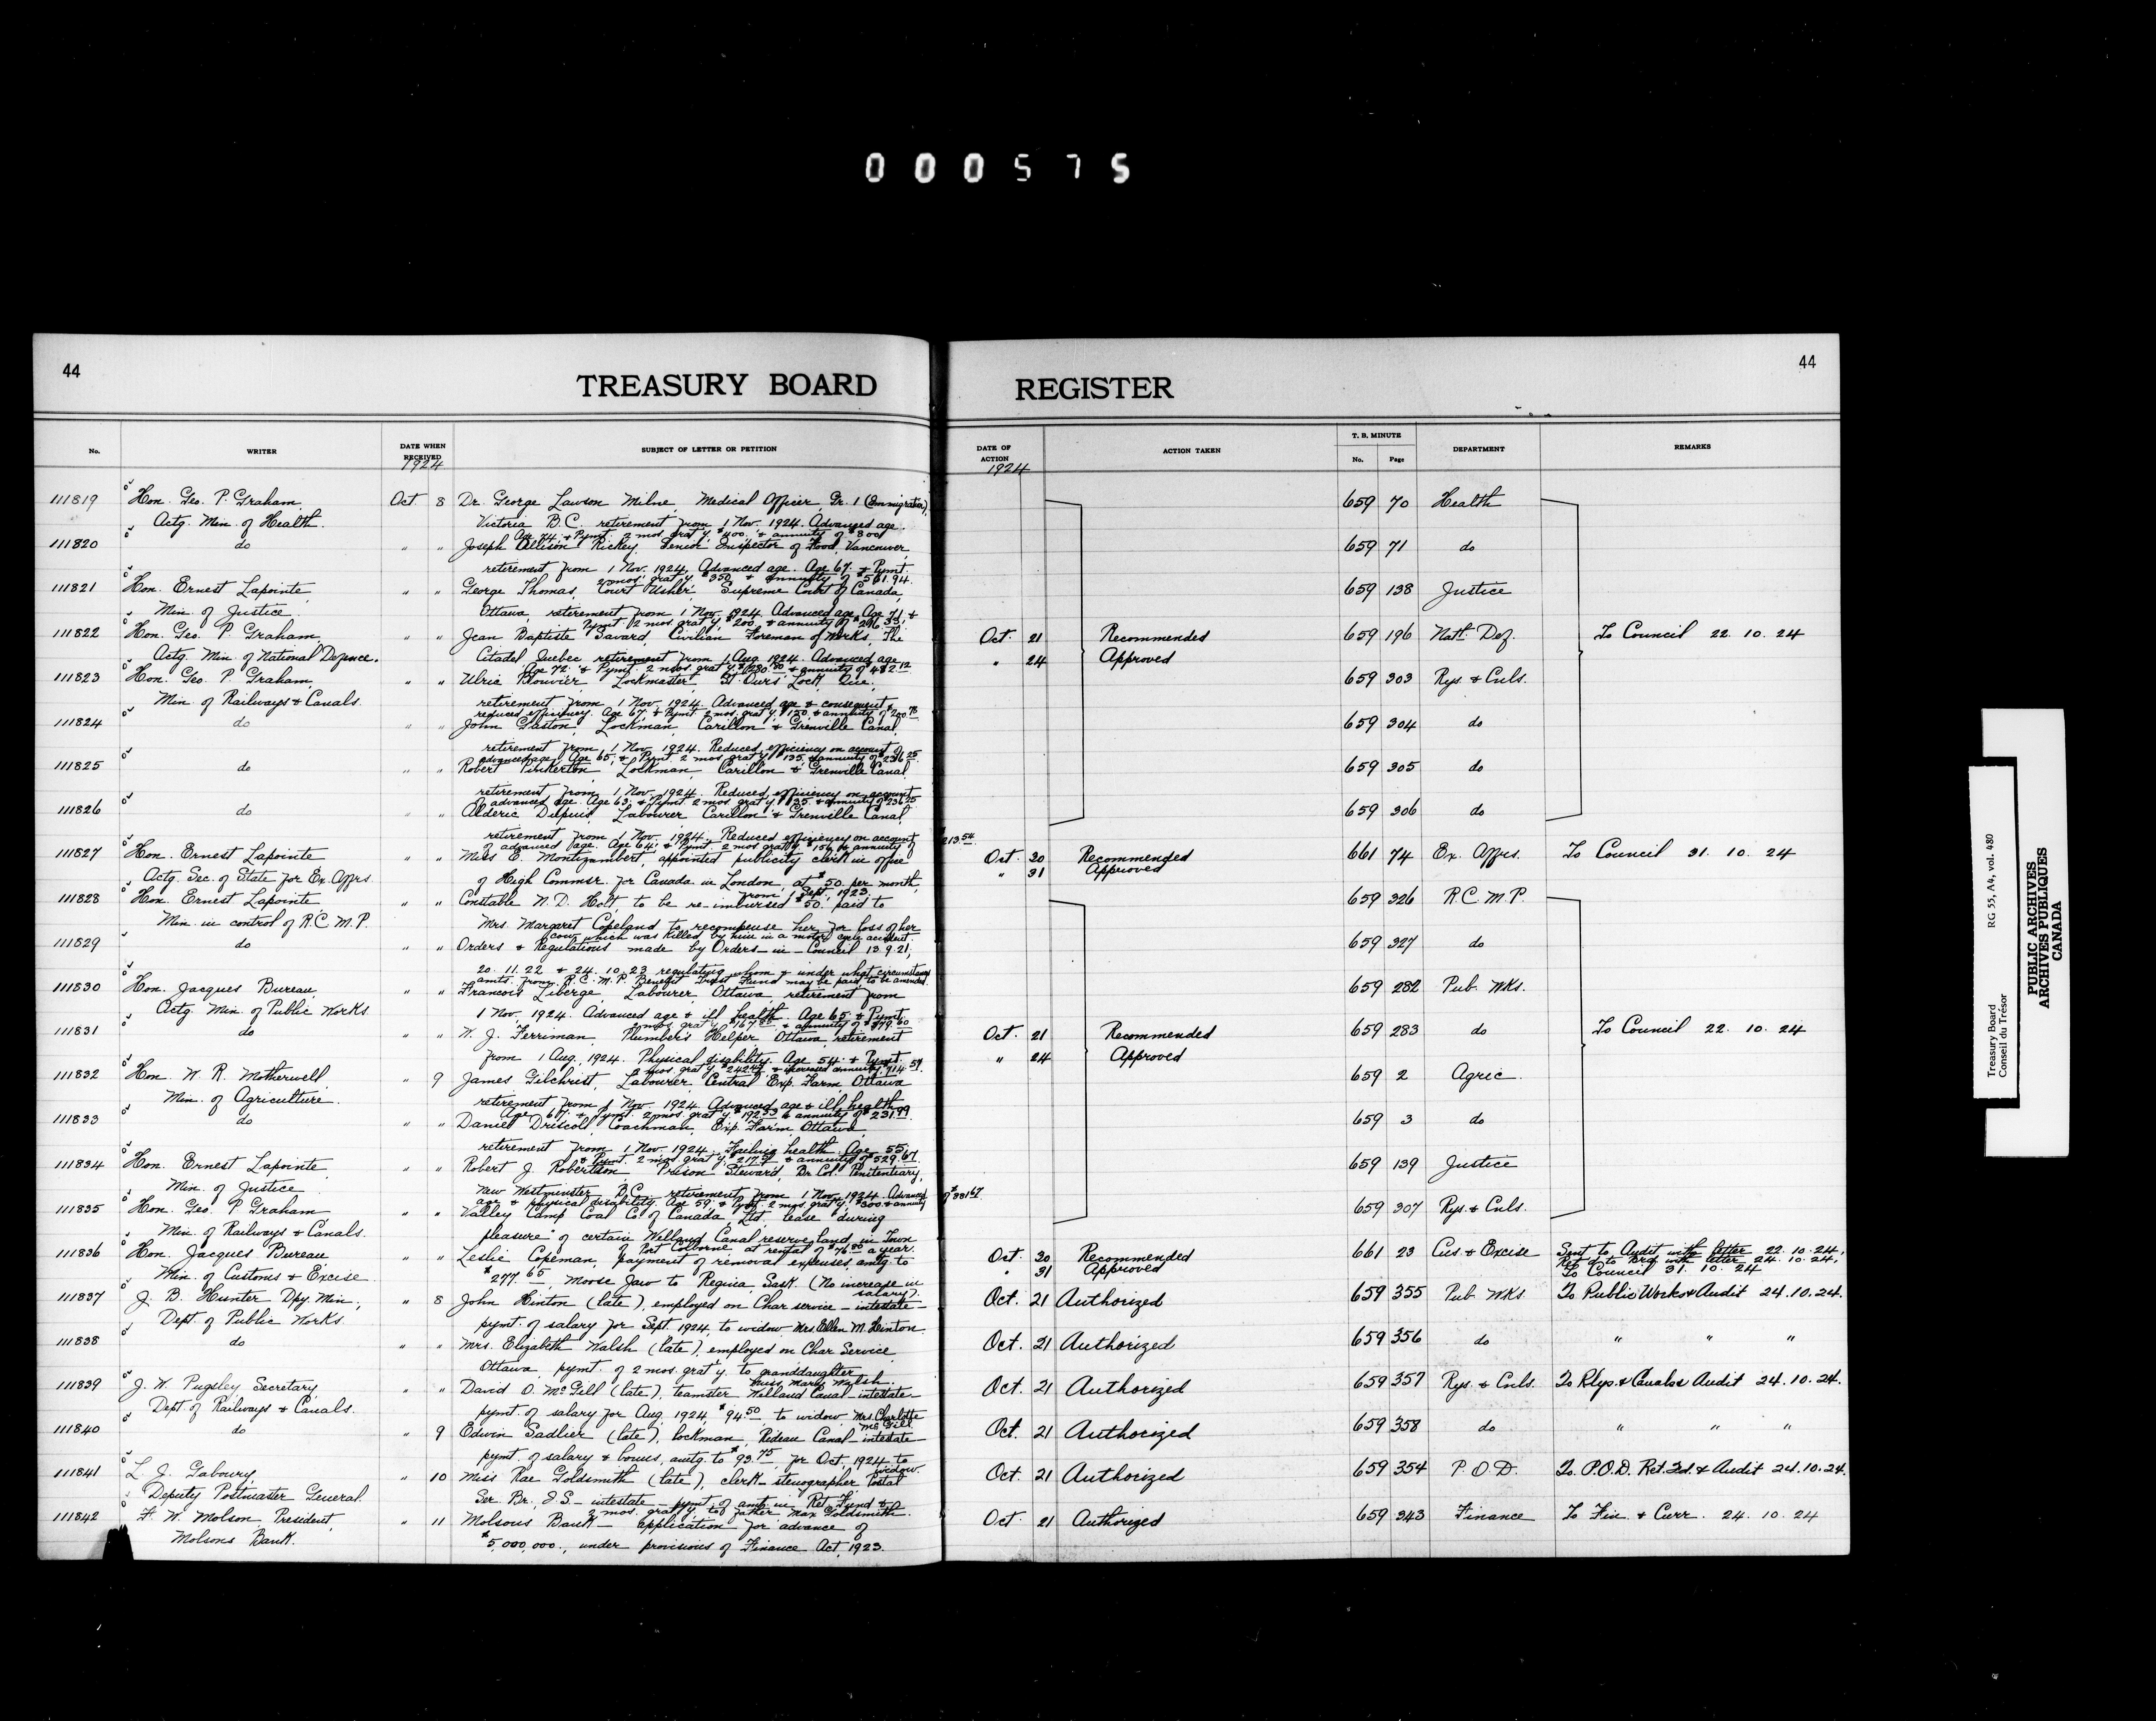 000575
44
TREASURY BOARD
No.
WRITER
DATE WHEN RECEIVED
1924
SUBJECT OF LETTER OR PETITION
111819 Hon. Geo. P. Graham, Oct 8 Dr. George Lawson Milne, Medical Officer, Gr. 1 (Immigration),
Actg. Min. of Health. Victoria B.C. retirement from 1 Nov. 1924. Advanced age.
Age 74. & Pymt. 2 mos. grat'y. $400. & annuity of $800
111820 do " " Joseph Allison Rickey, Senior Inspector of Food, Vancouver,
retirement from 1 Nov. 1924. Advanced age. Age 67. & Pymt.
2 mos. grat'y. $350. & annuity of $561.94.
111821 Hon. Ernest Lapointe, " " George Thomas, Court Usher, Supreme Court of Canada,
Min. of Justice. Ottawa, retirement from 1 Nov. 1924. Advanced age. Age 71. &
Pymt 2 mos. grat'y. $200. & annuity of $296.33.
111822 Hon. Geo. P. Graham, " " Jean Baptiste Savard Civilian Foreman of Works The
Actg. Min. of National Defence. Citadel Quebec retirement from 1 Aug. 1924. Advanced age.
Age 72. & Pymt. 2 mos. grat'y. $280.80 & annuity of 482.12
111823 Hon. Geo. P. Graham, " " Ulric Plouvier, Lockmaster, St. Ours Lock, Que.,
Min. of Railways & Canals. retirement from 1 Nov. 1924. Advanced age & consequent
reduced efficiency. Age 67. & Pymt 2 mos. grat'y. $150. & annuity of 200.78
111824 do " " John Gaston, Lockman, Carillon & Grenville Canal,
retirement from 1 Nov. 1924. Reduced efficiency on account of
advanced age. Age 65. & Pymt. 2 mos. grat'y. $135. & annuity of $236.25
111825 do " " Robert Pinkerton Lockman, Carillon & Grenville Canal
retirement from 1 Nov. 1924. Reduced efficiency on account
of advanced age. Age 63. & Pymt 2 mos. grat'y. $135. & annuity of $236.25
111826 do " " Alderic Dupuis, Labourer Carillon & Grenville Canal,
retirement from 1 Nov. 1924. Reduced efficiency on account
of advanced age. Age 64. & Pymt 2 mos grat'y. $156. & annuity of
111827 Hon. Ernest Lapointe " " Miss E. Montizambert, appointed publicity clerk in office
Actg. Sec. of State for Ex. Affrs of High Commsr. for Canada in London, at $50. per month,
from 1 Sept. 1923.
111828 Hon. Ernest Lapointe, " " Constable N. D. Holt, to be re-imbursed $50. paid to
Min. in control of R.C.M.P. Mrs. Margaret Copeland to recompense her for loss of her
cow, which was killed by him in a motor cycle accident.
111829 do " " Orders & Regulations made by Orders-in-Council 13.9.21,
20.11.22 & 24.10.23 regulating whom & under what circumstances
amts. from R.C.M.P. Benefit Trust Fund may be paid, to be amended.
111830 Hon. Jacques Bureau, " " Francois Liberge, Labourer, Ottawa, retirement from
Actg. Min. of Public Works 1 Nov. 1924. Advanced age & ill health. Age 65 & Pymt.
111831 do " " W. J. Ferriman, Plumber's Helper, Ottawa, retirement
from 1 Aug. 1924. Physical disability. Age 54. & Pymt.
111832 Hon. W. R. Motherwell, " 9 James Gilchrist, Labourer, Central Exp. Farm, Ottawa
Min. of Agriculture. retirement from 1 Nov. 1924. Advanced age & ill health
Age 67. & Pymt. 2 mos. grat'y. $192.33 & annuity of $231.99
111833 do " " Daniel Driscoll, Coachman, Exp. Farm Ottawa
retirement from 1 Nov. 1924. Failing health. Age 55.
111834 Hon. Ernest Lapointe, " " Robert J. Robertson Prison Steward, Br. Col. Penitentiary,
Min. of Justice New Westminster B.C. retirement from 1 Nov. 1924. Advanced
age & physical disability. Age 59. & Pymt. 2 mos. grat'y. $300. & annuity
111835 Hon. Geo. P. Graham " " Valley Camp Coal Co. of Canada, Ltd. lease "during
Min. of Railways & Canals. pleasure" of certain Welland Canal reserve land, in Town
of Port Colborne, at rental of $76.00 a year.
111836 Hon. Jacques Bureau, " " Leslie Copeman, payment of removal expenses, amtg. to
Min. of Customs & Excise $277.65, Moose Jaw to Regina, Sask. (No increase in
salary).
111837 J. B. Hunter Dpy. Min., " 8 John Hinton (late), employed on Char service - intestate -
Dept. of Public Works. pymt. of salary for Sept. 1924, to widow Mrs. Ellen M. Hinton
111838 do " " Mrs. Elizabeth Walsh (late), employed on Char Service
Ottawa, pymt. of 2 mos. grat'y. to granddaughter
Miss Mary Walsh.
111839 J. W. Pugsley, Secretary, " " David O. McGill (late), teamster Welland Canal - intestate -
Dept. of Railways & Canals. pymt. of salary for Aug. 1924, $94.50 to widow, Mrs. Charlotte
McGill
111840 do " 9 Edwin Sadlier (late), lockman, Rideau Canal - intestate -
pymt. of salary & bonus, amtg. to $93.75, for Oct. 1924 to
widow.
111841 L. J. Gaboury, " 10 Miss Rae Goldsmith (late), clerk-stenographer, Postal
Deputy Postmaster General. Ser. Br., I.S. - intestate - pymt. of amt. in Ret. Fund &
2 mos. grat'y. to father, Max Goldsmith.
111842 F. W. Molson, President, " 11 Molsons Bank - application for advance of
Molsons Bank. $5,000,000., under provisions of Finance Act, 1923.
44
REGISTER
DATE OF ACTION
1924
ACTION TAKEN
T. B. MINUTE
No. Page
DEPARTMENT
REMARKS
659 70 Health
659 71 do
659 138 Justice
Oct. 21 Recommended 659 196 Natl. Def. To Council 22.10.24
" 24 Approved
659 303 Rys. & Cnls.
659 304 do
659 305 do
659 306 do
213.54
Oct. 30 Recommended 661 74 Ex. Affrs. To Council 31.10.24
" 31 Approved
659 326 R.C.M.P.
659 327 do
659 282 Pub. Wks.
Oct. 21 Recommended 659 283 do To Council 22.10.24
" 24 Approved
659 2 Agric.
659 3 do
659 139 Justice
of $331.67
659 307 Rys. & Cnls.
Oct. 30 Recommended 661 23 Cus. & Excise Sent to Audit with letter 22.10.24,
" 31 Approved Ret'd to Brd. with letter 24.10.24,
To Council 31.10.24
Oct. 21 Authorized 659 355 Pub. Wks To Public Works & Audit 24.10.24.
Oct. 21 Authorized 659 356 do " " "
Oct. 21 Authorized 659 357 Rys. & Cnls. To Rlys. & Canals & Audit 24.10.24.
Oct. 21 Authorized 659 358 do " " "
Oct. 21 Authorized 659 354 P.O.D. To P.O.D. Ret. Fd. & Audit 24.10.24.
Oct. 21 Authorized 659 343 Finance To Fin. & Curr. 24.10.24
Treasury Board RG 55, A4, vol. 480
Conseil du Trésor
PUBLIC ARCHIVES
ARCHIVES PUBLIQUES
CANADA